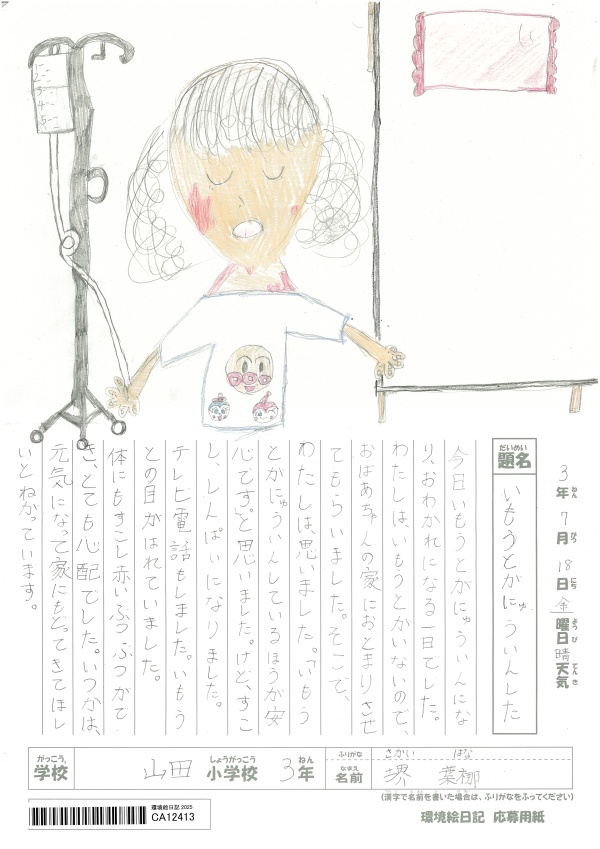 1
2
3
4
5
だいめい
題名
いもうとがにゅういんした
3年 7月 18日 金曜日 晴 天気
ねん がつ にち ようび てんき
今日いもうとがにゅういんにな
り、おわかれになる一日でした。
わたしは、いもうとがいないので、
おばあちゃんの家におとまりさせ
てもらいました。そこで、
わたしは、思いました。「いもう
とがにゅういんしているほうが安
心です。」と思いました。けど、すこ
し、しんぱいになりました。
テレビ電話もしました。いもう
との目がはれていました。
体にもすこし赤いぶつぶつがで
き、とても心配でした。いつかは、
元気になって家にもどってきてほし
いとねがっています。
がっこう しょうがっこう ねん ふりがな さかい はな
学校 山田 小学校 3年 なまえ 名前 堺 葉柳
(漢字で名前を書いた場合は、ふりがなをふってください)
環境絵日記 2025
CA12413
環境絵日記 応募用紙